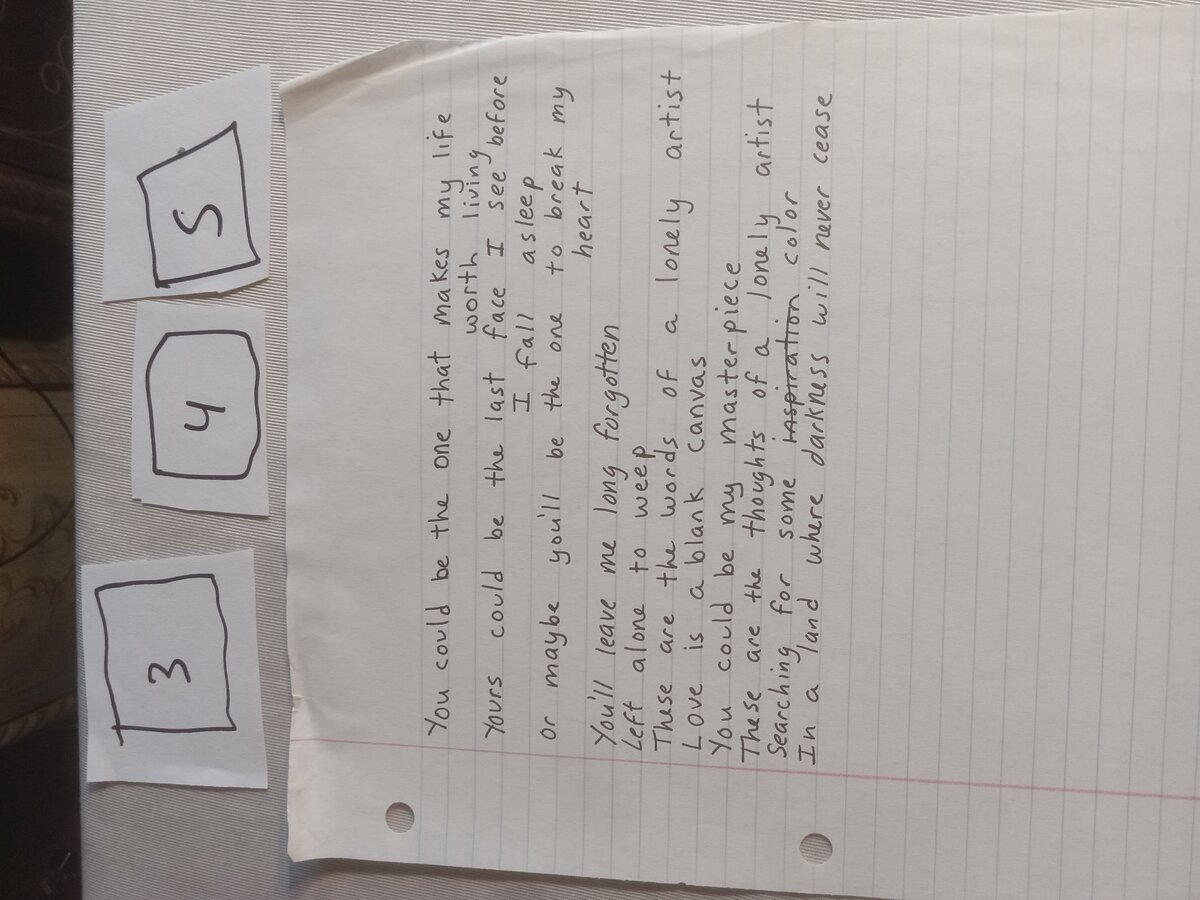 3 4 5
You could be the one that makes my life
worth living
Yours could be the last face I see before
I fall asleep
or maybe you'll be the one to break my
heart
You'll leave me long forgotten
Left alone to weep
These are the words of a lonely artist
Love is a blank canvas
You could be my masterpiece
These are the thoughts of a lonely artist
Searching for some inspiration color
In a land where darkness will never cease